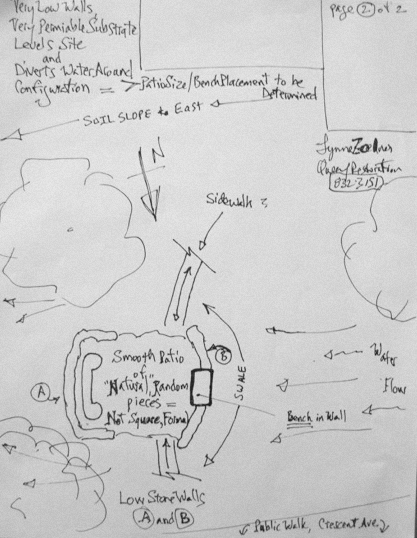 Very Low Walls,
Very Permiable Substrate
Levels Site
and
Diverts Water Around
Configuration =
Patio Size/Bench Placement to be
Determined
page 2 of 2
SOIL SLOPE to East
N
Lynne
832-3151
Sidewalk ?
Smooth Patio
of
"Natural", Random
pieces =
Not Square, Formal
A
B
SWALE
Water
Flow
Bench in Wall
Low Stone Walls
A and B
Public Walk, Crescent Ave.